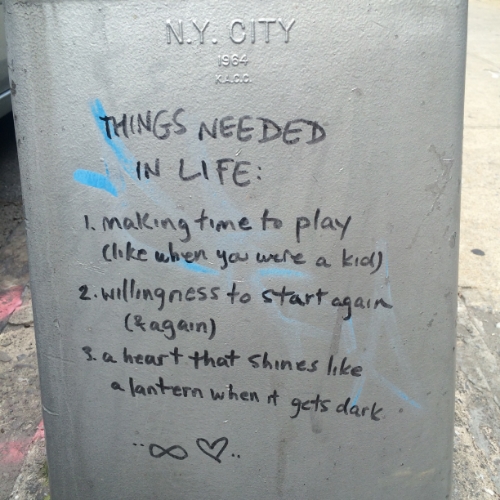 N.Y. CITY
1964
K.A.C.C.
THINGS NEEDED
IN LIFE:
1. making time to play
(like when you were a kid)
2. willingness to start again
(& again)
3. a heart that shines like
a lantern when it gets dark
∞ ♡